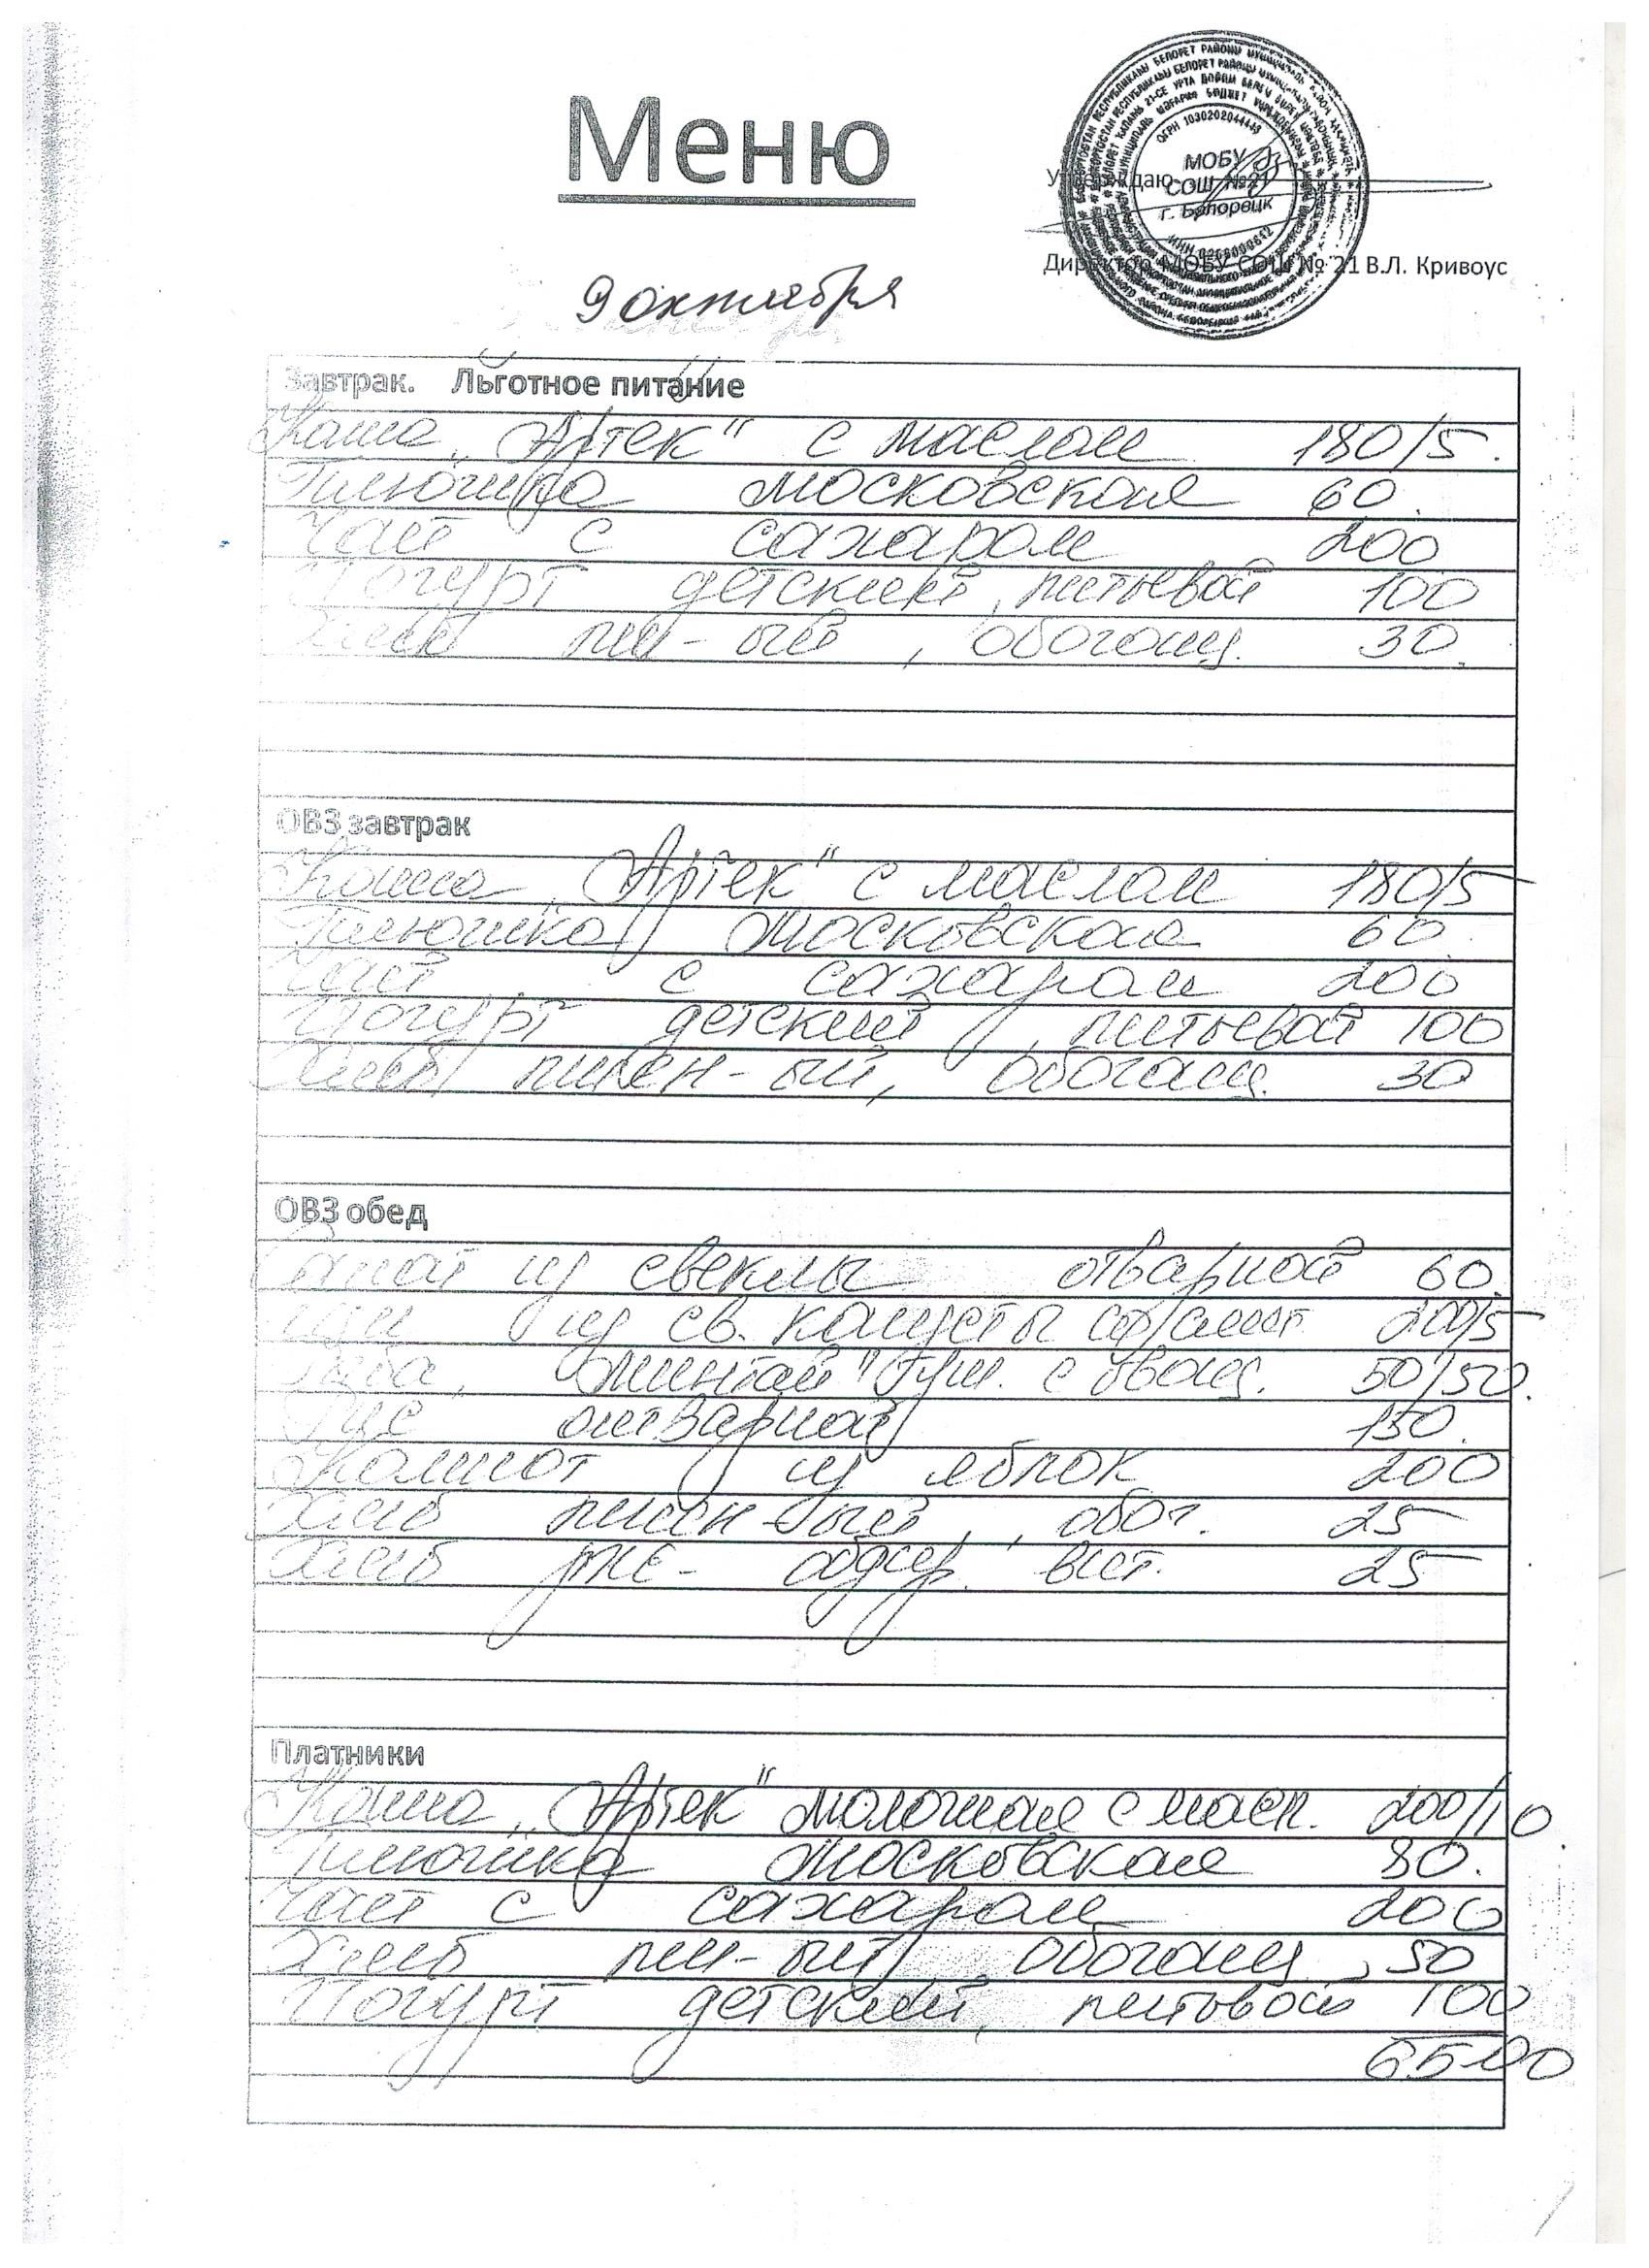 Меню
Утверждаю
МОБУ
СОШ №21
г. Белорецк
ОГРН 1030202044449
Директор МОБУ СОШ № 21 В.Л. Кривоус
9 октября
Завтрак. Льготное питание
Каша "Артек" с маслом 180/5.
Плюшка московская 60.
Чай с сахаром 200
Йогурт детский, питьевой 100
Хлеб пш-ый, обогащ. 30.
ОВЗ завтрак
Каша "Артек" с маслом 180/5
Плюшка Московская 60.
Чай с сахаром 200
Йогурт детский, питьевой 100
Хлеб пшен-ый, обогащ. 30
ОВЗ обед
Салат из свеклы отварной 60.
Щи из св. капусты со смет. 200/5
Рыба "Минтай" туш. с овощ. 50/50.
Рис отварной 150.
Компот из яблок 200
Хлеб пшен-ый, обог. 25
Хлеб рж- обдир. 25
Платники
Каша "Артек" молочная с масл. 200/10.
Плюшка Московская 80.
Чай с сахаром 200
Хлеб пш-ый, обогащ, 50
Йогурт детский, питьевой 100